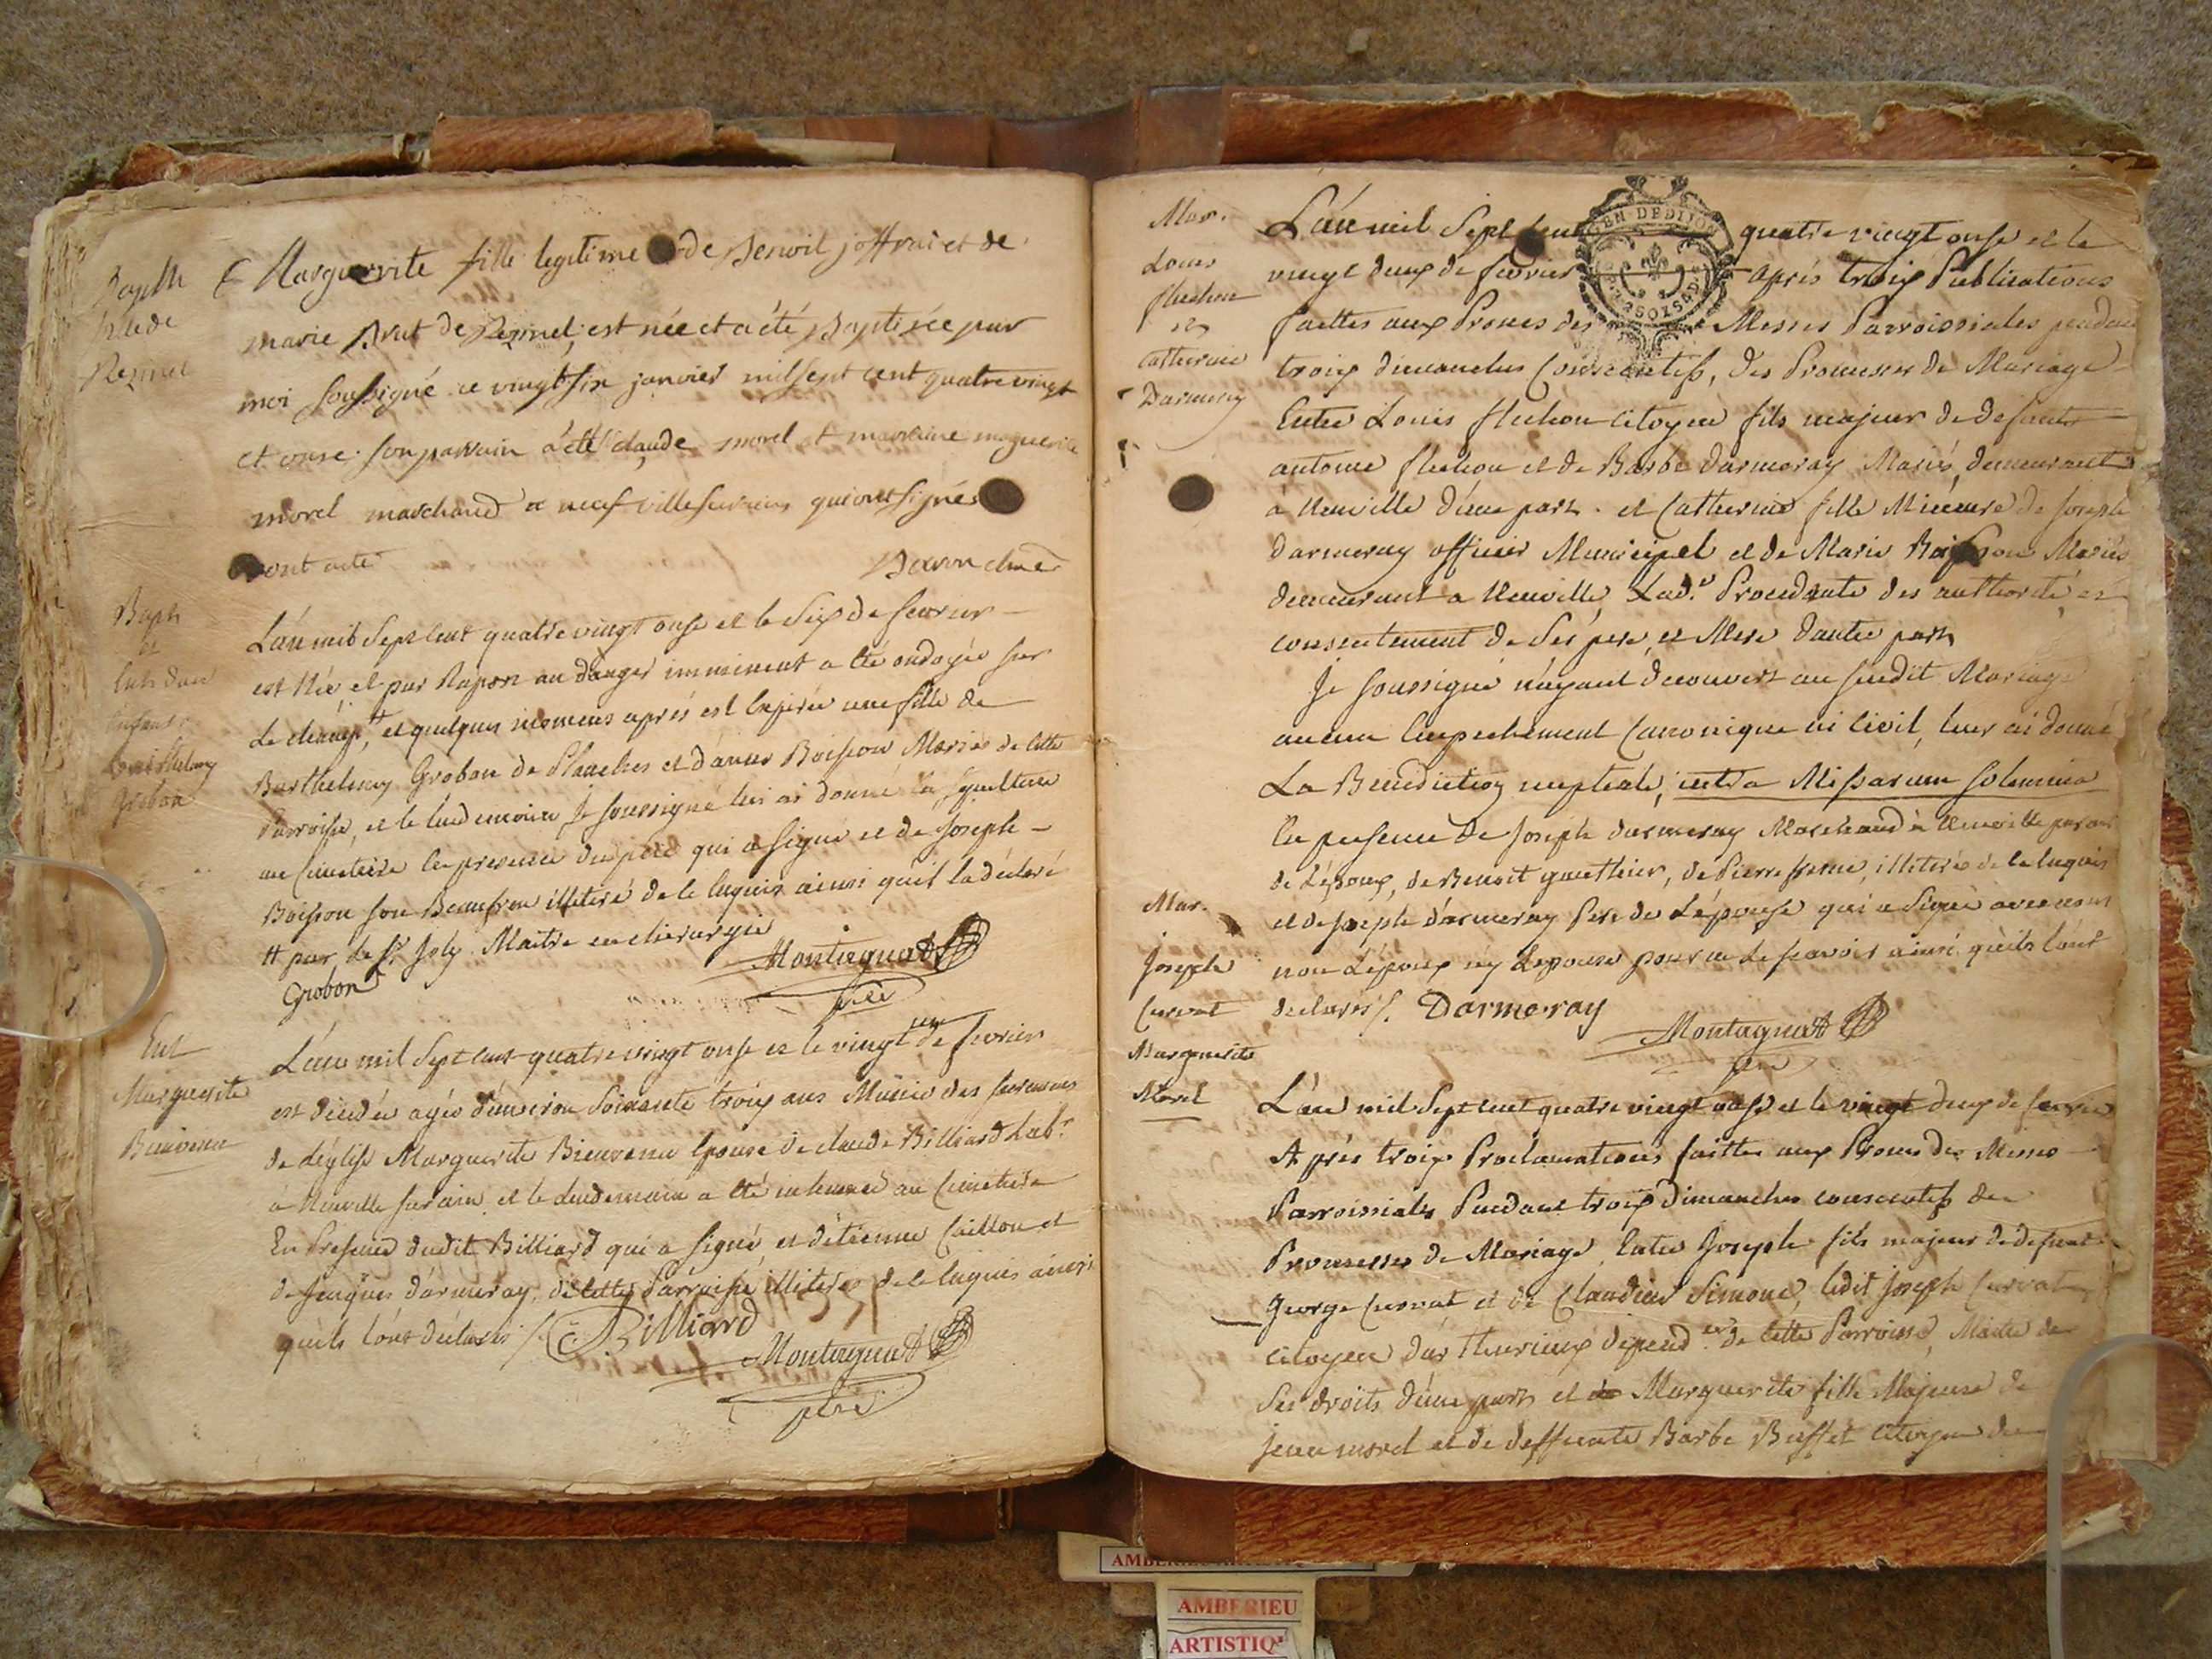 Marguerite fille legitime de Benoit joffrai et de
marie Brut de Rezmel, est née et a été Baptisée par
moi soussigné ce vingt six janvier mil sept cent quatre vingt
et onze. son parrain a été claude morel et marraine
morel marchand a neuf ville qui ont signé
dont acte
L'an mil Sept cent quatre vingt onse et le Six de fevrier
est Née et par Raport au danger imminent a été ondoyée sur
Le champ, # et quelques momens après est Expirée une fille de
Barthelemy Grobon de Planches et d'anne Boisson Mariés de cette
Parroisse, et le lendemain Je soussigné lui ai donné la Sepulture
au Cimetière en presence du père qui a signé et de Joseph
Boisson son Beaufrere illiteré de ce enquis ainsi qu'il l'a déclaré
# par le Sr Joly Maitre en chirurgie
Grobon
Montagnat
ptre
Ent
Marguerite
Bienvenu
L'an mil Sept cent quatre vingt onse et le vingt un de fevrier
est décédée agée d'environ Soixante trois ans Munie des sacremens
de l'église Marguerite Bienvenu Epouse de claude Billiard Labr
à Neuville sur ain, et le Lendemain a été inhumée au Cimetière
En Presence dudit Billiard qui a signé, et d'étienne Caillon et
de Jacques d'armeray, de cette Parroisse illiterés de ce enquis ainsi
qu'ils l'ont déclarés /.
Billiard
Montagnat
ptre
Mar.
Louis
flechon
et
Catherine
Darmeray
L'an mil Sept Cent quatre vingt onse et le
EN DEDIJON
vingt deux de fevrier Après trois Publications
faittes aux Prones des Messes Parroissiales pendant
trois dimanches Consecutifs, des Promesses de Mariage
Entre Louis flechon Citoyen fils majeur de defunt
antoine flechon et de Barbe darmeray Mariés, demeurant
à Neuville d'une part. et Catherine fille Mineure de Joseph
Darmeray officier Municipal et de Marie Boisson Mariés
demeurant a Neuville, Lade Procedante des authorité et
consentement de Ses pere et Mere d'autre part
Je soussigné n'ayant découvert au susdit Mariage
aucun Empechement Canonique ni Civil, leur ai donné
La Benediction nuptiale, intra Missarum solemnia
En presence de Joseph darmeray Marchand à Neuville
de L'époux, de Benoit gauthier, de Pierre illiterés de ce enquis
et de Joseph d'armeray Pere de L'épouse qui a Signé avec nous
non L'époux ny L'epouse pour ne le scavoir ainsi qu'ils l'ont
declarés /. Darmeray
Montagnat
ptre
Mar.
Joseph
Curvat
Marguerite
Morel
L'an mil Sept cent quatre vingt onse et le vingt deux de fevrier
Après trois Proclamations faittes aux Prones des Messes
Parroissiales Pendant trois dimanches consecutifs des
Promesses de Mariage, Entre Joseph fils majeur de defunt
George Curvat et de Claudine Simone, ledit Joseph Curvat
Citoyen depend. de cette Parroisse, Maitre de
Ses droits d'une part et Marguerite fille Majeure de
Jean morel et de deffunte Barbe Buffet Citoyen de
AMBERIEU
ARTISTIQ